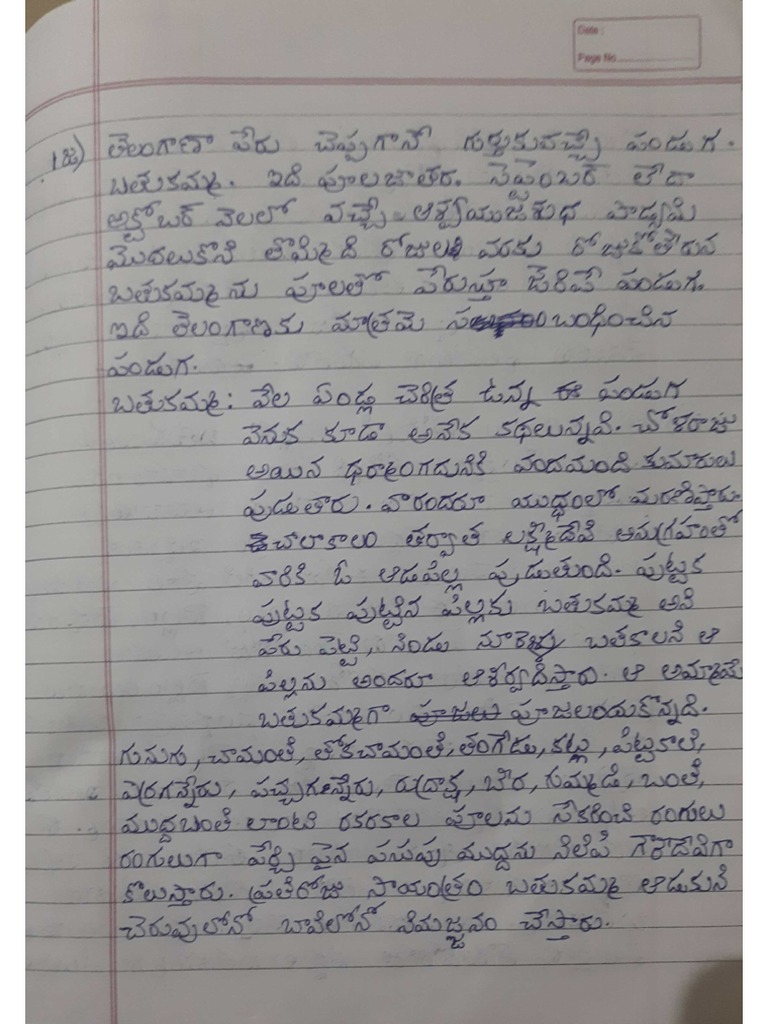 Date :
Page No.
1 జ) తెలంగాణా పేరు చెప్పగానే గుర్తుకువచ్చే పండుగ.
బతుకమ్మ. ఇది పూలజాతర. సెప్టెంబర్ లేదా
అక్టోబర్ నెలలో వచ్చే ఆశ్వయుజశుధ పాడ్యమి
మొదలుకొని తొమ్మిది రోజుల వరకు రోజుకోతీరున
బతుకమ్మను పూలతో పేరుస్తూ జరిపే పండుగ.
ఇది తెలంగాణకు మాత్రమె సంబంధించిన
పండుగ.
బతుకమ్మ: వేల ఏండ్ల చరిత్ర ఉన్న ఈ పండుగ
వెనుక కూడా అనేక కథలున్నవి. చోళరాజు
అయిన ధర్మాంగదునికి వందమంది కుమారులు
పుడుతారు. వారందరూ యుద్ధంలో మరణిస్తారు.
చాలాకాలం తర్వాత లక్ష్మీదేవి అనుగ్రహంతో
వారికి ఓ ఆడపిల్ల పుడుతుంది. పుట్టక
పుట్టక పుట్టిన పిల్లకు బతుకమ్మ అని
పేరు పెట్టి, నిండు నూరేళ్ళు బతకాలని ఆ
పిల్లను అందరూ ఆశీర్వదిస్తారు. ఆ అమ్మాయె
బతుకమ్మగా పూజలందుకొన్నది.
గునుగు, చామంతి, తోకచామంతి, తంగేడు, కట్ల, పిట్టకాలి,
ఎర్రగన్నేరు, పచ్చగన్నేరు, రుద్రాక్ష, బీర, గుమ్మడి, బంతి,
ముద్దబంతి లాంటి రకరకాల పూలను సేకరించి రంగులు
రంగులుగా పేర్చి పైన పసుపు ముద్దను నిలిపి గౌరీదేవిగా
కొలుస్తారు. ప్రతిరోజు సాయంత్రం బతుకమ్మ ఆడుకుని
చెరువులోనో బావిలోనో నిమజ్జనం చేస్తారు.